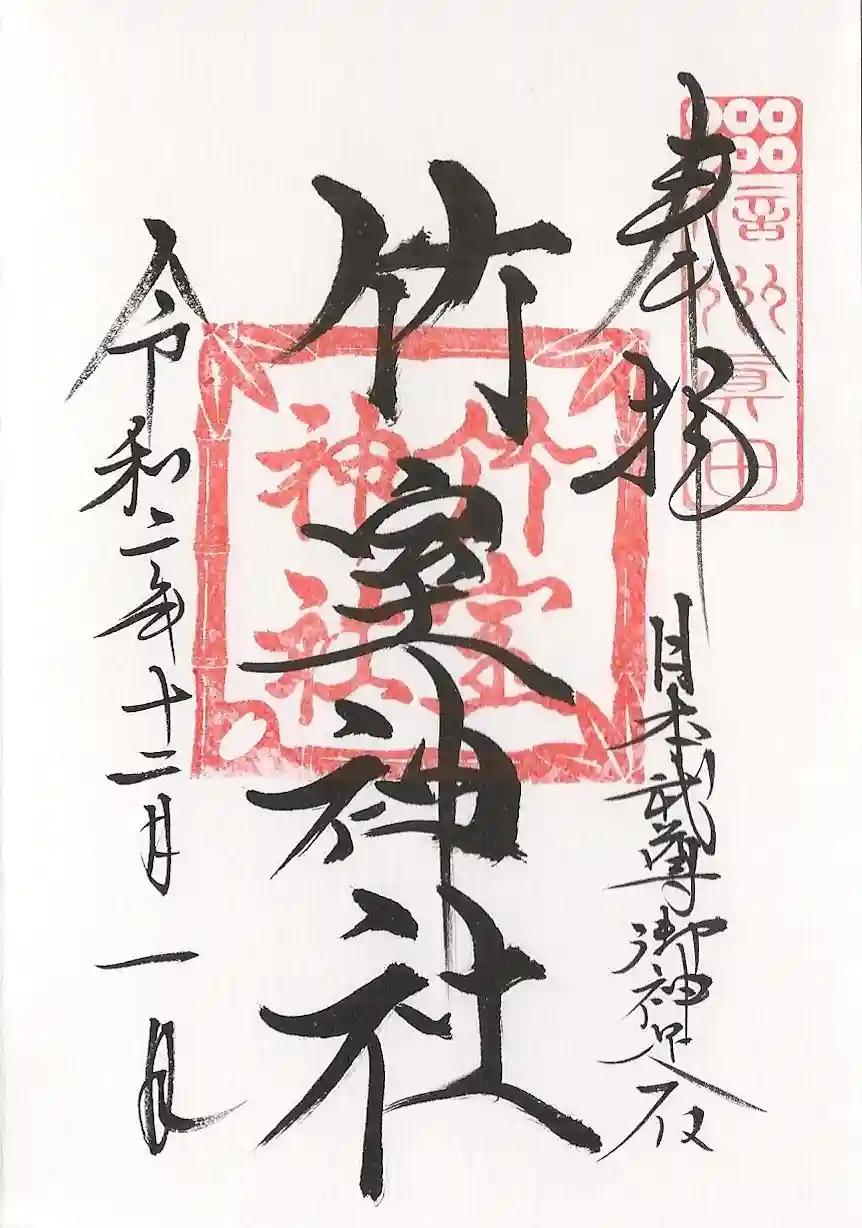 信州眞田
奉拝
日本武尊御神足
竹室神社
竹室
神社
令和二年十二月一日